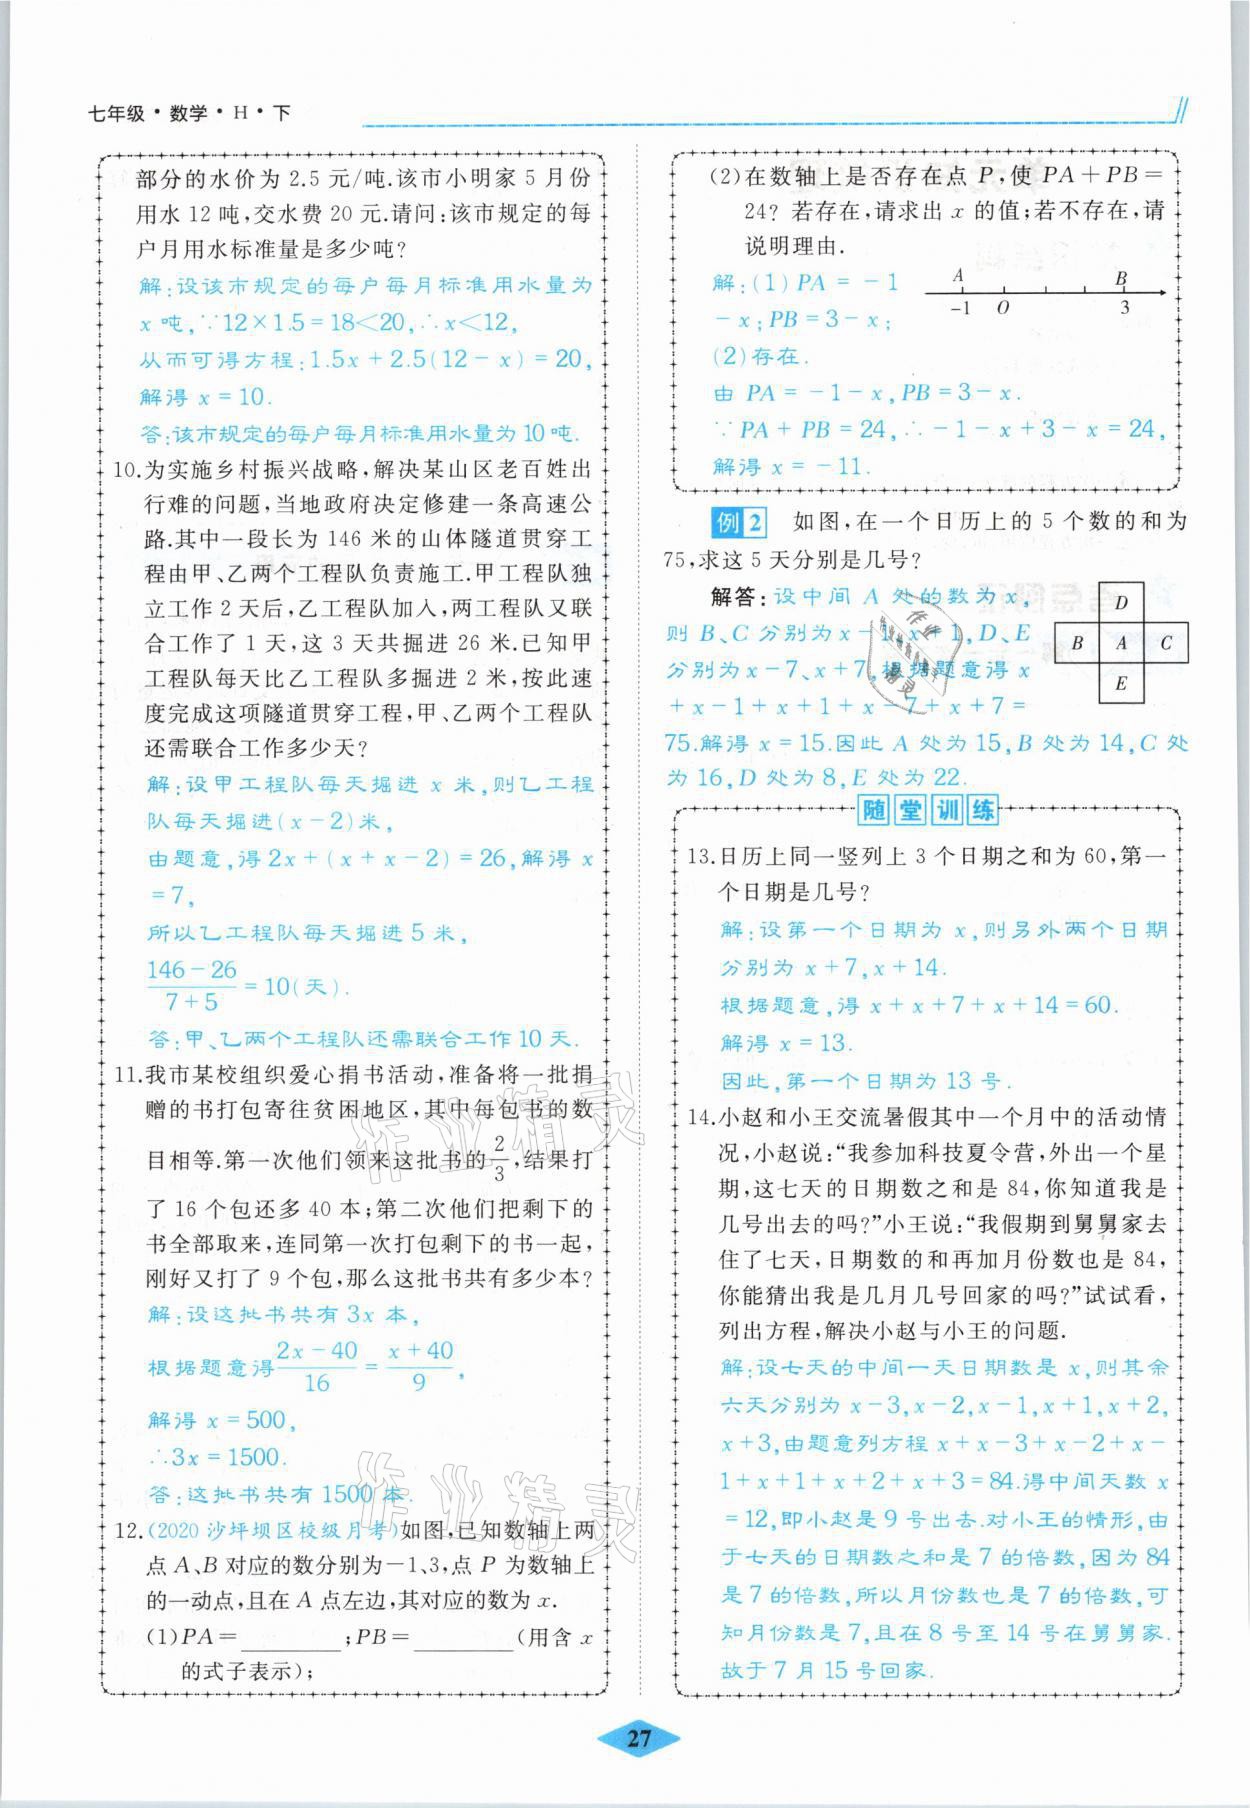 七年级·数学·H·下
部分的水价为 2.5 元/吨.该市小明家 5 月份
用水 12 吨,交水费 20 元.请问:该市规定的每
户月用水标准量是多少吨?
解:设该市规定的每户每月标准用水量为
x 吨,∵12×1.5=18<20,∴x<12,
从而可得方程:1.5x+2.5(12-x)=20,
解得 x=10.
答:该市规定的每户每月标准用水量为10吨.
10.为实施乡村振兴战略,解决某山区老百姓出
行难的问题,当地政府决定修建一条高速公
路.其中一段长为 146 米的山体隧道贯穿工
程由甲、乙两个工程队负责施工.甲工程队独
立工作 2 天后,乙工程队加入,两工程队又联
合工作了 1 天,这 3 天共掘进 26 米.已知甲
工程队每天比乙工程队多掘进 2 米,按此速
度完成这项隧道贯穿工程,甲、乙两个工程队
还需联合工作多少天?
解:设甲工程队每天掘进 x 米,则乙工程
队每天掘进(x-2)米,
由题意,得2x+(x+x-2)=26,解得 x
=7,
所以乙工程队每天掘进5米,
146-26/7+5=10(天).
答:甲、乙两个工程队还需联合工作10天.
11.我市某校组织爱心捐书活动,准备将一批捐
赠的书打包寄往贫困地区,其中每包书的数
目相等.第一次他们领来这批书的2/3,结果打
了 16 个包还多 40 本;第二次他们把剩下的
书全部取来,连同第一次打包剩下的书一起,
刚好又打了 9 个包,那么这批书共有多少本?
解:设这批书共有 3x 本,
根据题意得2x-40/16=x+40/9,
解得 x=500,
∴3x=1500.
答:这批书共有1500本.
12.(2020沙坪坝区校级月考)如图,已知数轴上两
点 A、B 对应的数分别为-1、3,点 P 为数轴上
的一动点,且在 A 点左边,其对应的数为 x.
(1)PA=______;PB=______(用含 x
的式子表示);
(2)在数轴上是否存在点 P,使 PA+PB=
24? 若存在,请求出 x 的值;若不存在,请
说明理由.
解:(1)PA=-1
-x;PB=3-x;
A B
-1 O 3
(2)存在.
由 PA=-1-x,PB=3-x.
∵PA+PB=24,∴-1-x+3-x=24,
解得 x=-11.
例2 如图,在一个日历上的 5 个数的和为
75,求这 5 天分别是几号?
解答:设中间 A 处的数为 x,
则 B、C 分别为 x-1,x+1,D、E
分别为 x-7、x+7,根据题意得 x
+x-1+x+1+x-7+x+7=
75.解得 x=15.因此 A 处为15,B 处为14,C 处
为16,D 处为8,E 处为22.
D
B A C
E
随堂训练
13.日历上同一竖列上 3 个日期之和为 60,第一
个日期是几号?
解:设第一个日期为 x,则另外两个日期
分别为 x+7,x+14.
根据题意,得 x+x+7+x+14=60.
解得 x=13.
因此,第一个日期为13号.
14.小赵和小王交流暑假其中一个月中的活动情
况,小赵说:“我参加科技夏令营,外出一个星
期,这七天的日期数之和是 84,你知道我是
几号出去的吗?”小王说:“我假期到舅舅家去
住了七天,日期数的和再加月份数也是 84,
你能猜出我是几月几号回家的吗?”试试看,
列出方程,解决小赵与小王的问题.
解:设七天的中间一天日期数是 x,则其余
六天分别为 x-3,x-2,x-1,x+1,x+2,
x+3,由题意列方程 x+x-3+x-2+x-
1+x+1+x+2+x+3=84.得中间天数 x
=12,即小赵是9号出去.对小王的情形,由
于七天的日期数之和是7的倍数,因为84
是7的倍数,所以月份数也是7的倍数,可
知月份数是7,且在8号至14号在舅舅家.
故于7月15号回家.
27
作业精灵
作业精灵